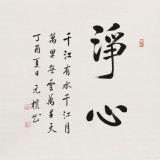 淨心
千江有水千江月
萬里無雲萬里天
丁酉夏日 元樸書